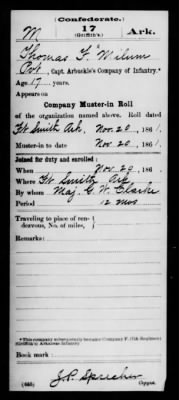 (Confederate.)
M 17 Ark.
(Griffith's)
Thomas F. Milum
Pvt, Capt. Arbuckle's Company of Infantry.*
Age 17 years.
Appears on
Company Muster-in Roll
of the organization named above. Roll dated
Ft Smith Ark, Nov. 20, 1861.
Muster-in to date Nov. 20, 1861.
Joined for duty and enrolled:
When Nov. 20, 1861.
Where Ft Smith Ark
By whom Maj. G. W. Clarke
Period 12 mos.
Traveling to place of ren-
dezvous, No. of miles,
Remarks:
*This company subsequently became Company F, 17th Regiment
(Griffith's) Arkansas Infantry.
Book mark:
J.P. Sprecher
Copyist.